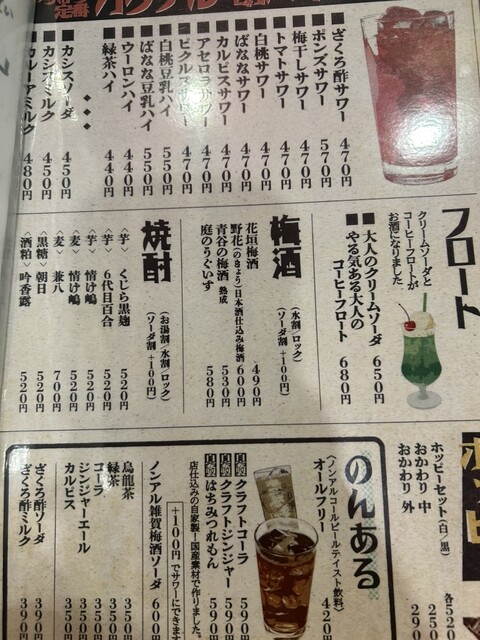 定番
ざくろ酢サワー 470円
ポンズサワー 570円
梅干しサワー 470円
トマトサワー 470円
白桃サワー 470円
ばななサワー 470円
カルピスサワー 470円
アセロラサワー 470円
ピクルスサワー 470円
白桃豆乳ハイ 550円
ばなな豆乳ハイ 550円
ウーロンハイ 440円
緑茶ハイ 440円
カシスソーダ 450円
カシスミルク 450円
カルーアミルク 480円
フロート
クリームソーダと
コーヒーフロートが
お酒になりました
大人のクリームソーダ 650円
やる気ある大人の
コーヒーフロート 680円
梅酒
(水割/ロック)
(ソーダ割+100円)
花垣梅酒 490円
野花(のきょう)日本酒仕込み梅酒 600円
青谷の梅酒 熟成 530円
庭のうぐいす 580円
焼酎
(お湯割/水割/ロック)
(ソーダ割+100円)
〈芋〉くじら黒麹 520円
〈芋〉6代目百合 520円
〈芋〉情け嶋 520円
〈麦〉情け嶋 520円
〈麦〉兼八 700円
〈黒糖〉朝日 520円
〈酒粕〉吟香露 520円
ホッピーセット(白/黒) 各52
おかわり 中 250
おかわり 外 290
のんある
(ノンアルコールビールテイスト飲料)
オールフリー 420
自家製 クラフトコーラ 590
自家製 クラフトジンジャー 590円
自家製 はちみつれもん 590円
店仕込みの自家製!国産素材で作りました。
+100円でサワーにできます
ノンアル雑賀梅酒ソーダ 600
烏龍茶 350
緑茶 350円
コーラ 350
ジンジャーエール 350
カルピス 350
ざくろ酢ソーダ 390
ざくろ酢ミルク 390